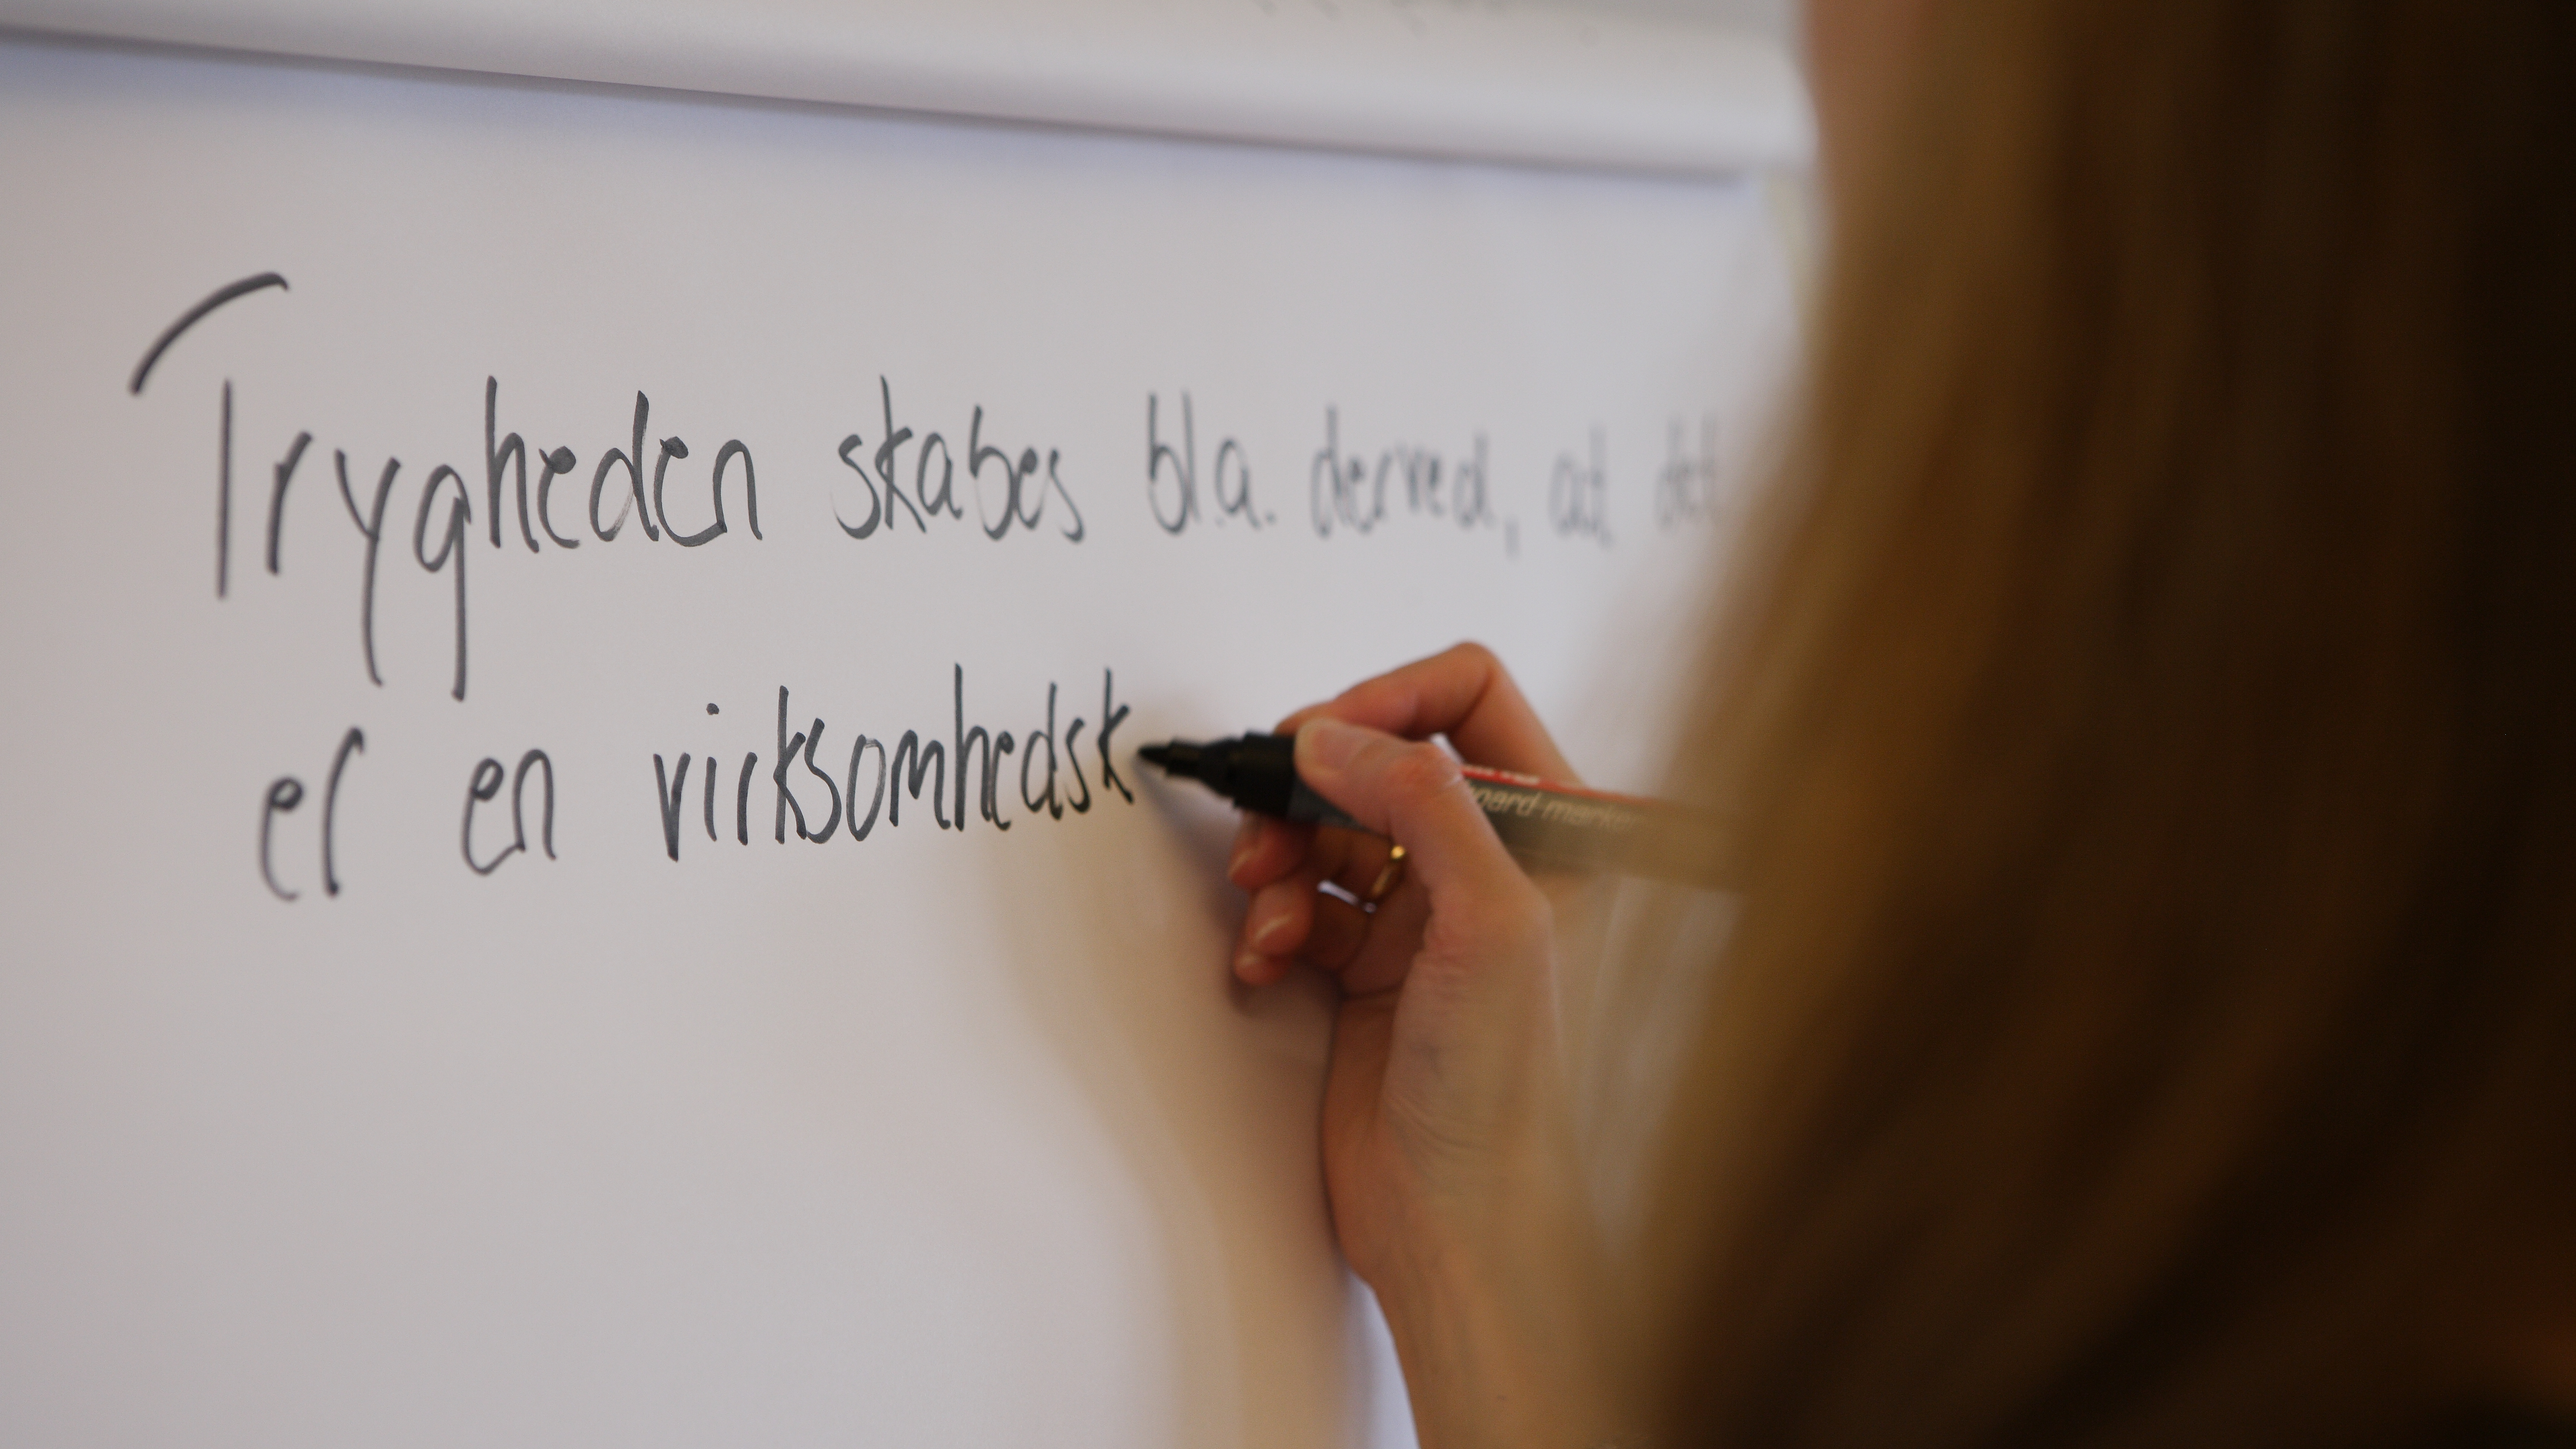 Trygheden skabes bl.a. derved, at det
er en virksomhedsk
board marker